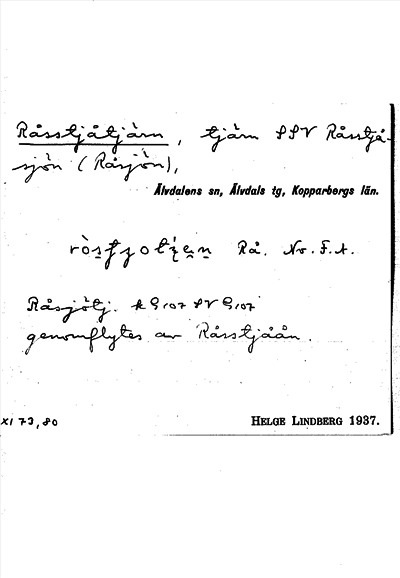 Råsstjåtjärn, tjärn SSV Råsstjå-
sjön (Råsjön),
Älvdalens sn, Älvdals tg, Kopparbergs län.
Rå. No. F. A.
Råsjötj. k G:107 SV G:107
genomflytes av Råsstjåån.
XI 73,80
HELGE LINDBERG 1937.